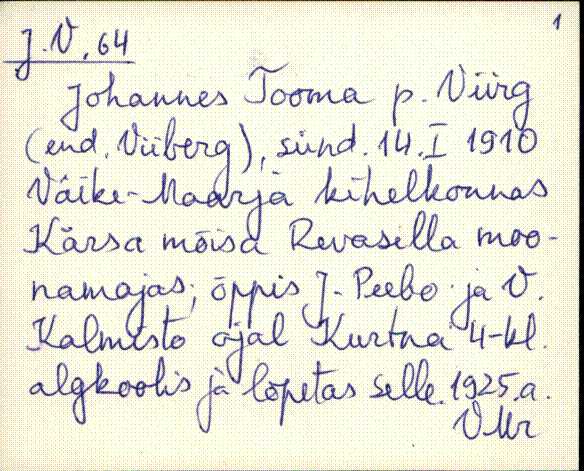 1
J.V, 64
Johannes Tooma p. Viirg
(end. Viiberg), sünd. 14. I 1910
Väike-Maarja kihelkonnas
Kärsa mõisa Revasilla moo-
namajas; õppis J. Peebo ja V.
Kalmisto ajal Kurtna 4-kl.
algkoolis ja lõpetas selle 1925.a.
VMr